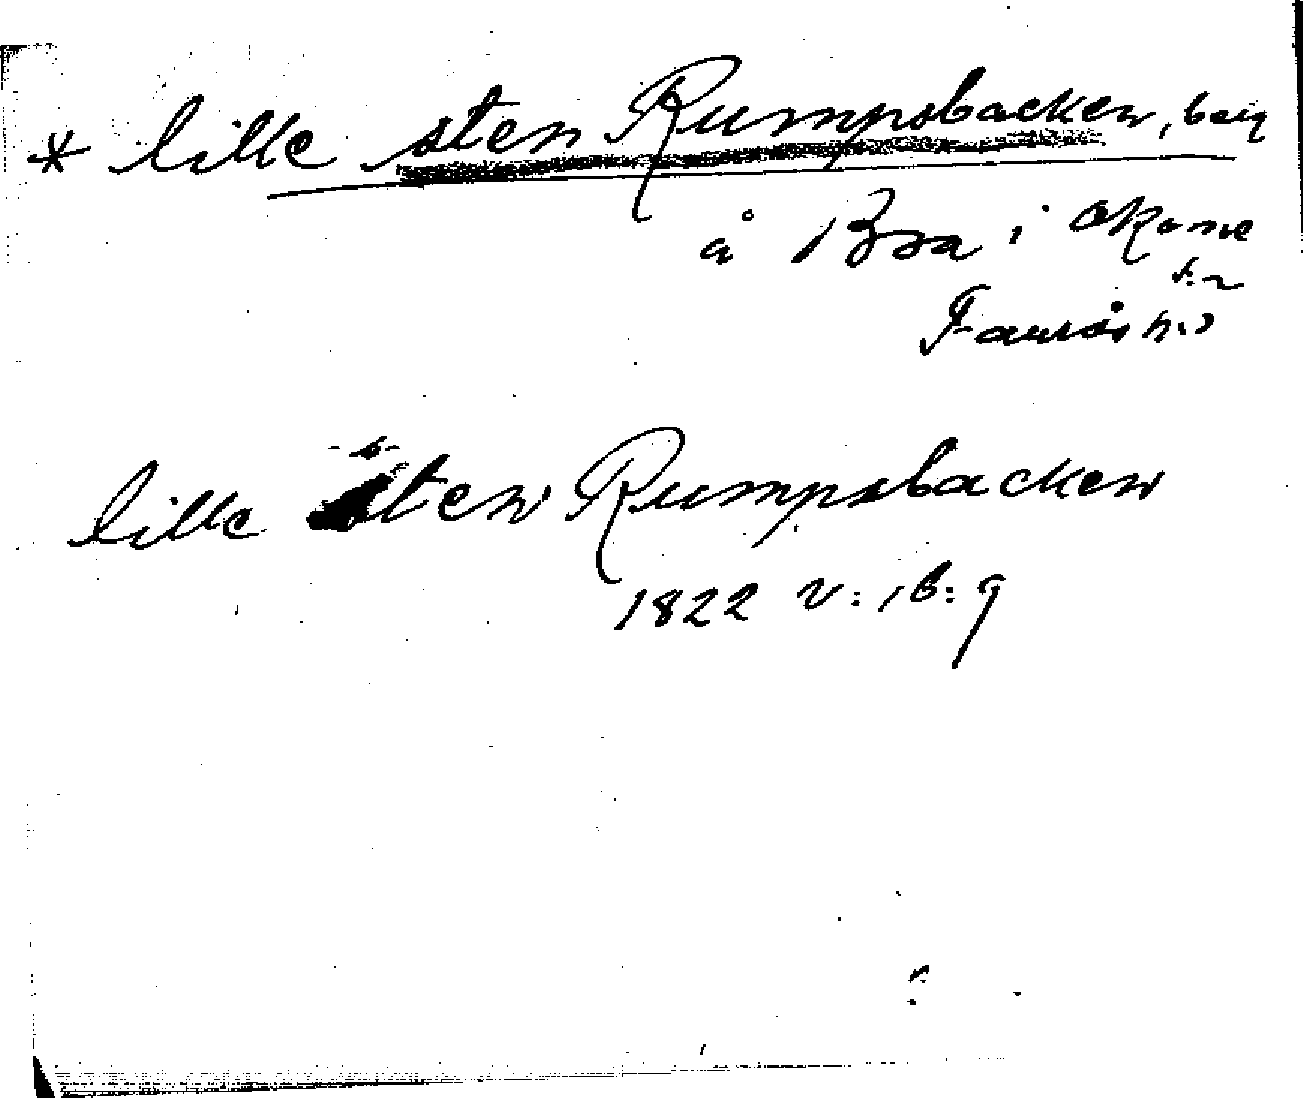 * lille sten Rumpsbacken, belg
å Bra i Skåne
s:n
Faurås h:d
lille sten Rumpsbacken
1822 v: , b: 9